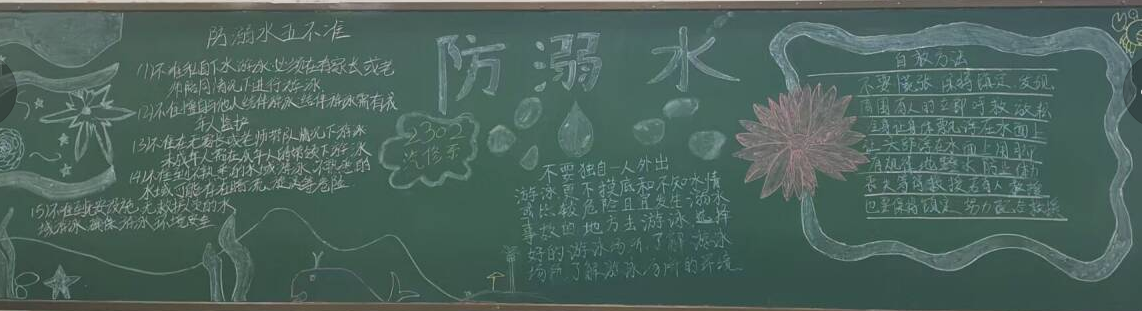 防溺水五不准
(1)不准私自下水游泳必须在有家长或老
师陪同情况下进行游泳
(2)不准擅自与他人结伴游泳结伴游泳需有成
年人监护
(3)不准在无家长或老师带队情况下游泳
未成年人需在成年人的带领下游泳
(4)不准到不熟悉的水域游泳不熟悉的
水域可能存在暗流漩涡等危险
(5)不准到无设施无救护人员的水
域游泳确保游泳环境安全
防溺水
2302
汽修
不要独自一人外出
游泳更不要到不摸底和不知水情
或比较危险且宜发生溺水
事故的地方去游泳选择
好的游泳场所了解游泳
场所了解游泳场所的环境
自救方法
不要慌张保持镇定发现
周围有人时立即呼救放松
全身让身体飘浮在水面上
将头部浮出水面上用脚
长久等待救援有人救援
也要保持镇定努力配合救援